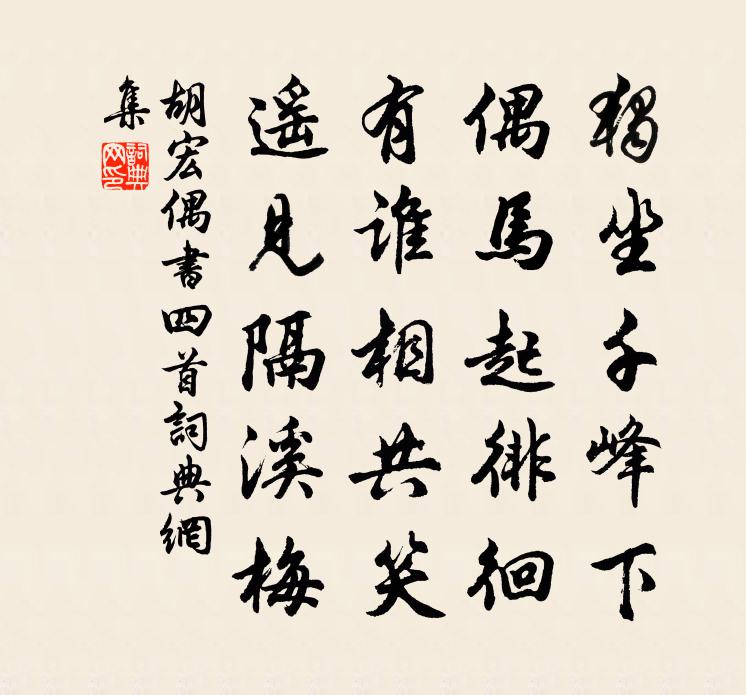 獨坐千峰下
偶馬起徘徊
有誰相共笑
遥見隔溪梅
胡宏偶書四首詞典網
集
詞典網印